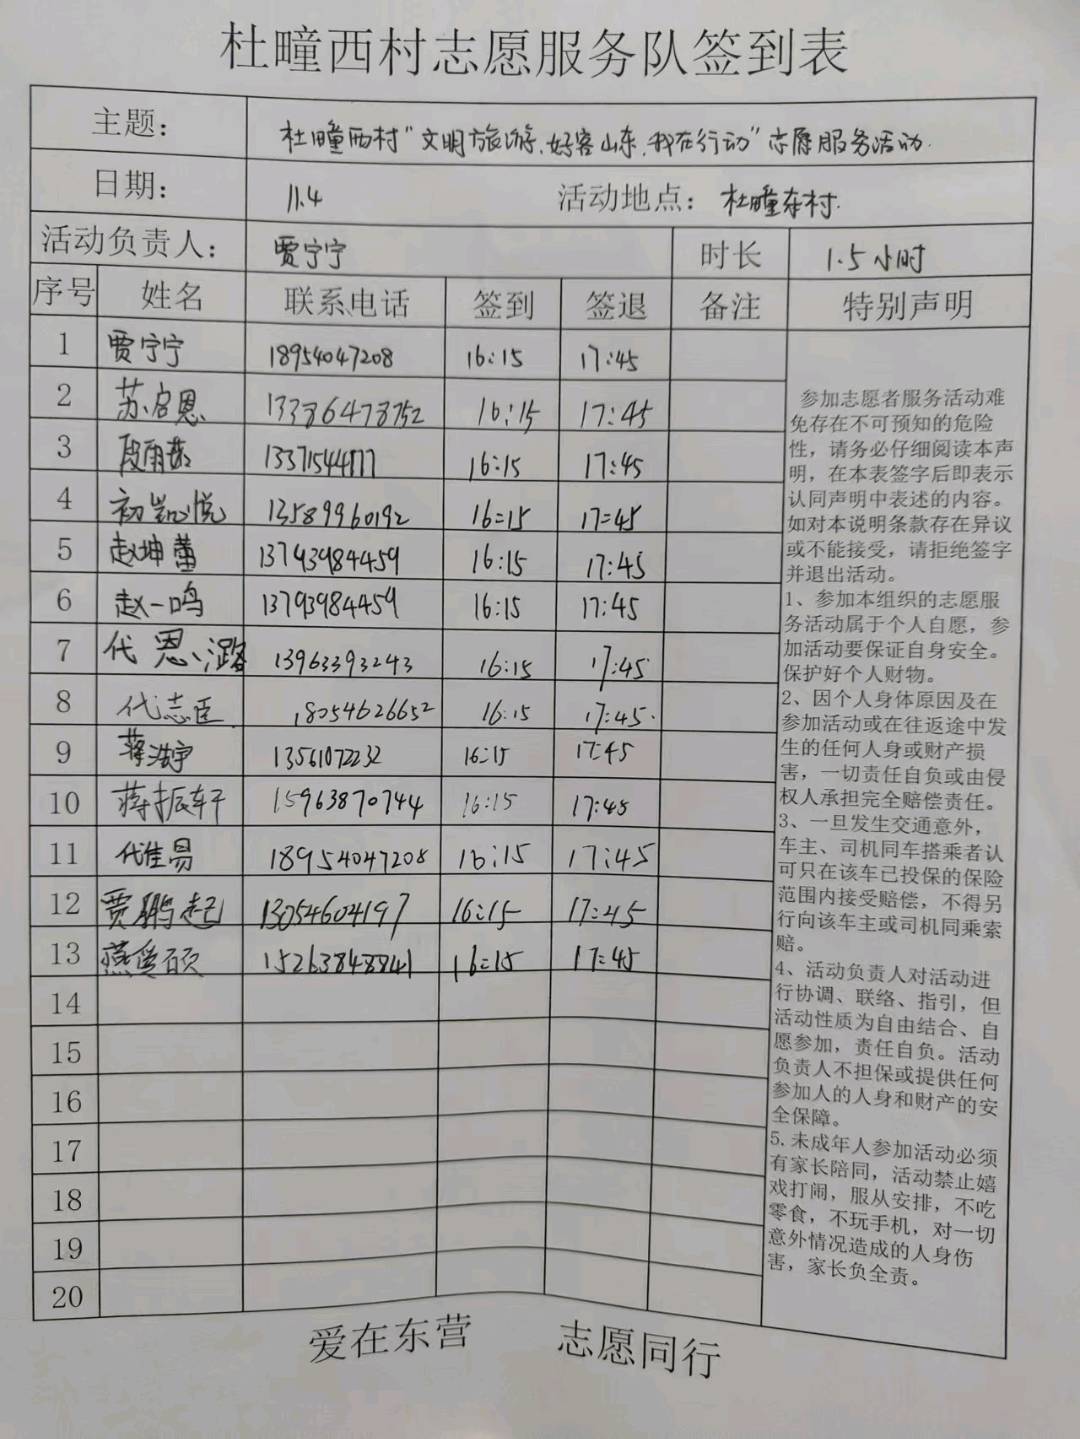 杜疃西村志愿服务队签到表
主题： 杜疃西村“文明旅游、好客山东、我在行动”志愿服务活动.
日期： 11.4 活动地点： 杜疃东村.
活动负责人： 贾宁宁 时长 1.5小时
序号 姓名 联系电话 签到 签退 备注 特别声明
1 贾宁宁 18954047208 16:15 17:45
2 苏启恩 13386478752 16:15 17:45
3 段雨 16:15 17:45
4 初 悦 13589960192 16:15 17:45
5 赵坤蕾 13793984459 16:15 17:45
6 赵一鸣 13793984459 16:15 17:45
7 代恩潞 13963393243 16:15 17:45
8 代志臣 18054626652 16:15 17:45
9 蒋浩宇 13561072232 16:15 17:45
10 蒋振轩 15963870744 16:15 17:45
11 代佳易 18954047208 16:15 17:45
12 贾鹏起 13054604197 16:15 17:45
13 燕 硕 15263848841 16:15 17:45
14
15
16
17
18
19
20
参加志愿者服务活动难
免存在不可预知的危险
性，请务必仔细阅读本声
明，在本表签字后即表示
认同声明中表述的内容。
如对本说明条款存在异议
或不能接受，请拒绝签字
并退出活动。
1、参加本组织的志愿服
务活动属于个人自愿，参
加活动要保证自身安全。
保护好个人财物。
2、因个人身体原因及在
参加活动或在往返途中发
生的任何人身或财产损
害，一切责任自负或由侵
权人承担完全赔偿责任。
3、一旦发生交通意外，
车主、司机同车搭乘者认
可只在该车已投保的保险
范围内接受赔偿，不得另
行向该车主或司机同乘索
赔。
4、活动负责人对活动进
行协调、联络、指引，但
活动性质为自由结合、自
愿参加，责任自负。活动
负责人不担保或提供任何
参加人的人身和财产的安
全保障。
5.未成年人参加活动必须
有家长陪同，活动禁止嬉
戏打闹，服从安排，不吃
零食，不玩手机，对一切
意外情况造成的人身伤
害，家长负全责。
爱在东营 志愿同行